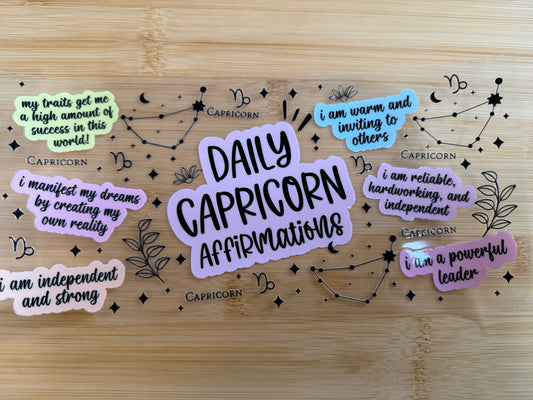 my traits get me
a high amount of
success in this
world!
Capricorn
i manifest my dreams
by creating my
own reality
i am independent
and strong
Capricorn
DAILY
CAPRICORN
AFFIRMATIONS
Capricorn
i am warm and
inviting to
others
Capricorn
i am reliable,
hardworking, and
independent
Capricorn
i am a powerful
leader